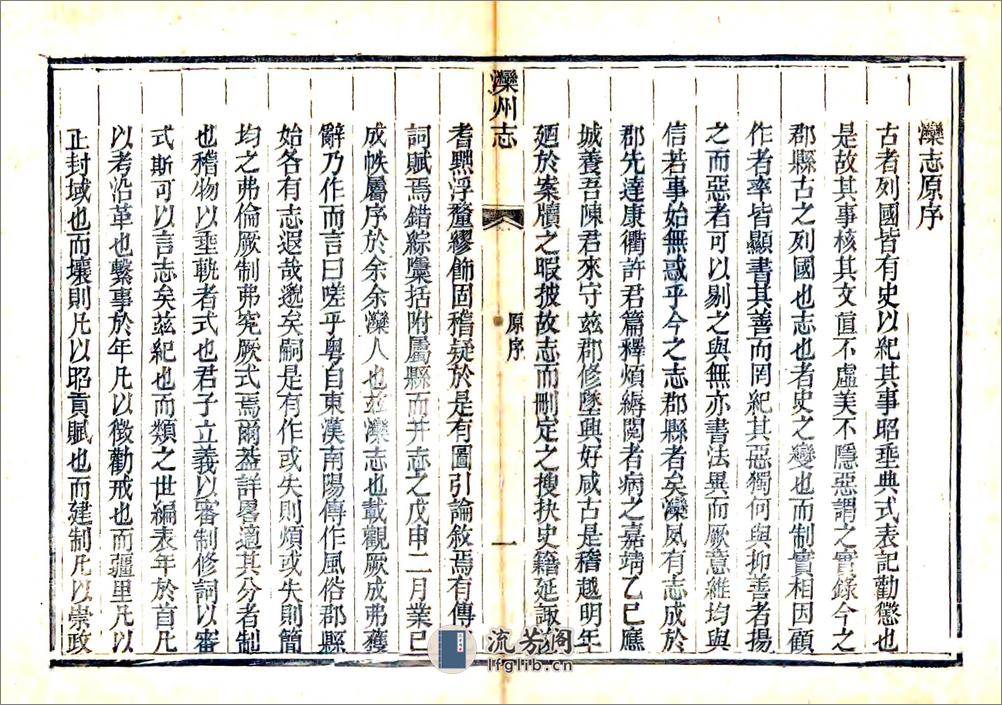 灤志原序
古者列國皆有史以紀其事昭垂典式表記勸懲也
是故其事核其文直不虛美不隱惡謂之實錄今之
郡縣古之列國也志也者史之變也而制實相因顧
作者率皆顯書其善而罔紀其惡獨何與抑善者揚
之而惡者可以剔之與無亦書法異而厥意維均與
信若事始無惑乎今之志郡縣者矣灤夙有志成於
郡先達康衢許君篇釋煩縟閱者病之嘉靖乙巳應
城養吾陳君來守茲郡修墜興好咸古是稽越明年
廼於案牘之暇披故志而刪定之搜抉史籍延諏
灤州志
原序
一
耆黙浮釐繆飾固稽疑於是有圖引論敘焉有傳
詞賦焉錯綜檃括附屬縣而幷志之戊申二月業已
成帙屬序於余余灤人也茲灤志也載觀厥成弗獲
辭乃作而言曰嗟乎粵自東漢南陽傳作風俗郡縣
始各有志遐哉邈矣嗣是有作或失則煩或失則簡
均之弗倫厥制弗究厥式焉爾葢詳畧適其分者制
也稽物以垂軌者式也君子立義以審制修詞以審
式斯可以言志矣茲紀也而類之世編表年於首凡
以考沿革也繫事於年凡以徵勸戒也而疆里凡以
正封域也而壤則凡以昭貢賦也而建制凡以崇政
流芳閣
lfglib.cn